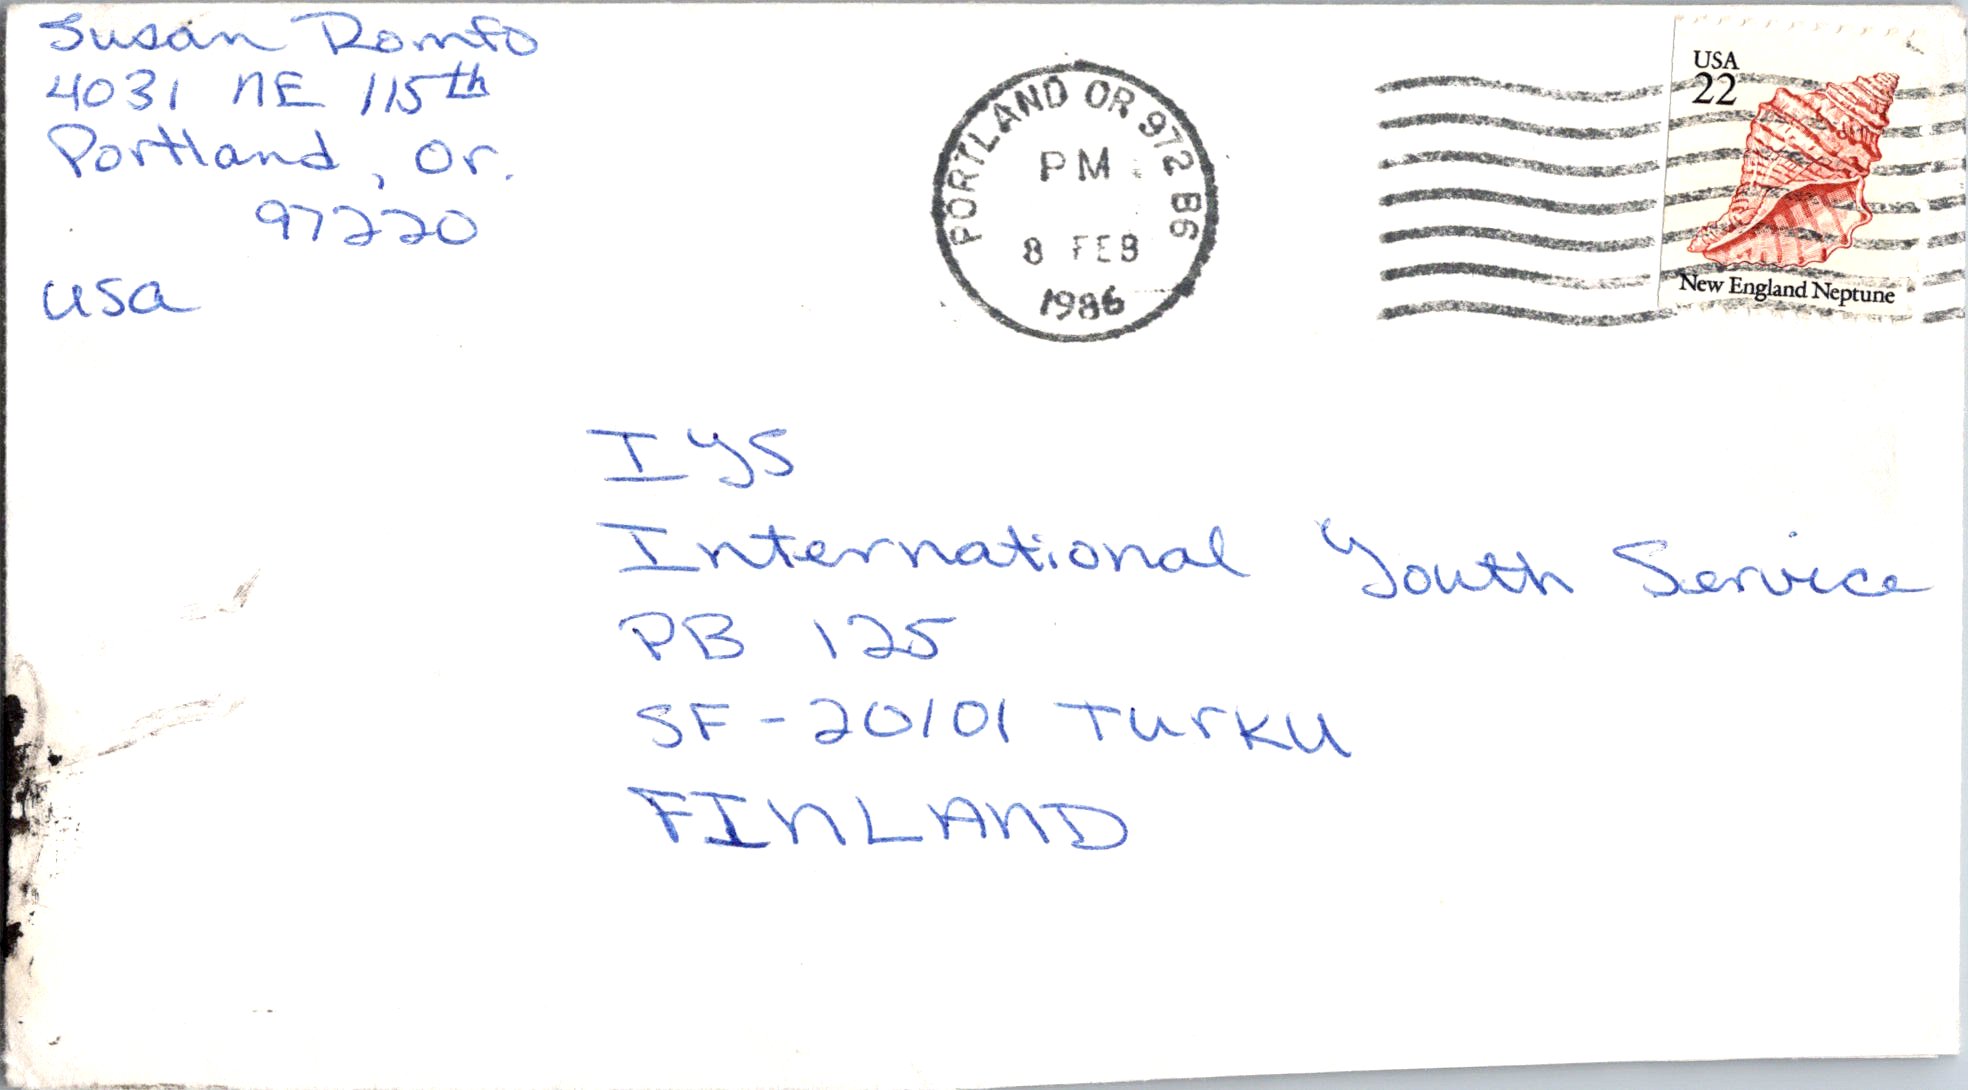 Susan Romfo
4031 NE 115th
Portland, Or.
97220
USA
PORTLAND OR 972 B6
PM
8 FEB
1986
USA
22
New England Neptune
IYS
International Youth Service
PB 125
SF-20101 TURKU
FINLAND